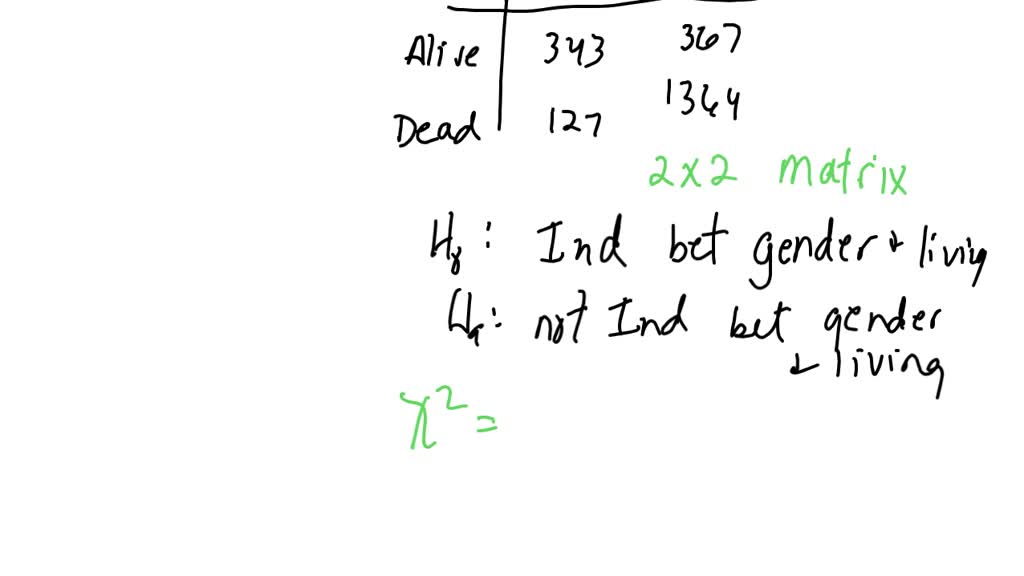 Alive 343 367
Dead 127 1364
2x2 matrix
H₀: Ind bet gender + living
Hₐ: not Ind bet gender
+ living
χ² =